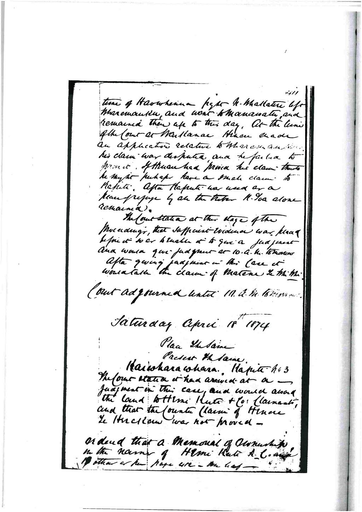 411
time of Haowhenua fight N. Whakatere left
Wharemauku, and went to Manawatu, and
remained there up to this day. At the time
of the Court at Waikanae Henere made
an application relative to
his claim was disputed, and he failed to
prove it. If Henere had proved his claim there
he might perhaps have an small claim to
Kapiti. After Kapiti was used as a
place of refuge by all the tribes N. Toa alone
remained.
The Court stated at this stage of the
proceedings, that sufficient evidence was
before it to enable it to give a judgment
and would give judgment at 10 A.M.
After giving judgment in this case it
would take the claim of Matene Te
Court adjourned until 10 A.M.
Saturday April 18th 1874
Place The Same
Present The Same.
Kaiwharawhara, Kapiti No 3
The Court stated it had arrived at a
judgment in this case, and would award
the land to Hemi Kuti & Co: Claimants,
and that the Counter Claim of Henere
Te Herekau was not proved —
Ordered that a Memorial of Ownership
in the name of Hemi Kuti